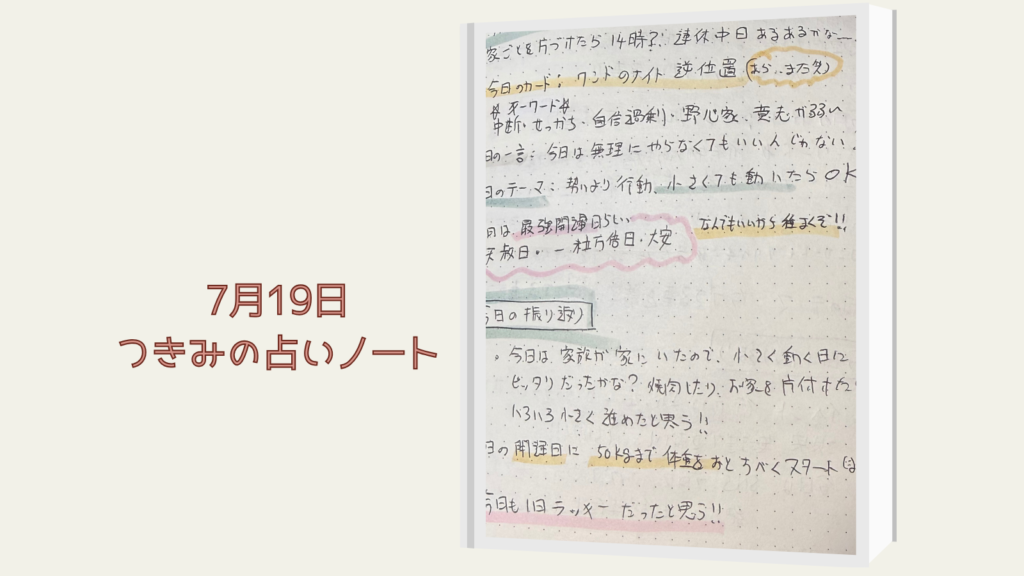 7月19日
つきみの占いノート
家ごとを片づけたら14時?! 連休中日あるあるかな
今日のカード: ワンドのナイト 逆位置 (あら、また欠)
キーワード
中断・せっかち・自信過剰・野心家、責走が弱い
日の一言: 今日は無理にやらなくてもいいんじゃない。
日のテーマ: 勢いより行動、小さくても動いたらOK
日は最強開運日らしい なんでもいいから種まくぞ!!
天赦日・一粒万倍日・大安
今日の振り返り
。今日は家族が家にいたので、小さく動く日に
ピッタリだったかな?焼肉したり、お家を片付けた
いろいろ小さく進めたと思う!!
日の開運日に 50kgまで体重をおとすべくスタート
今日も1日ラッキーだったと思う!!